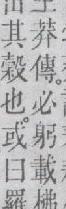 莽傳必躬載梯
出其穀也或曰羅